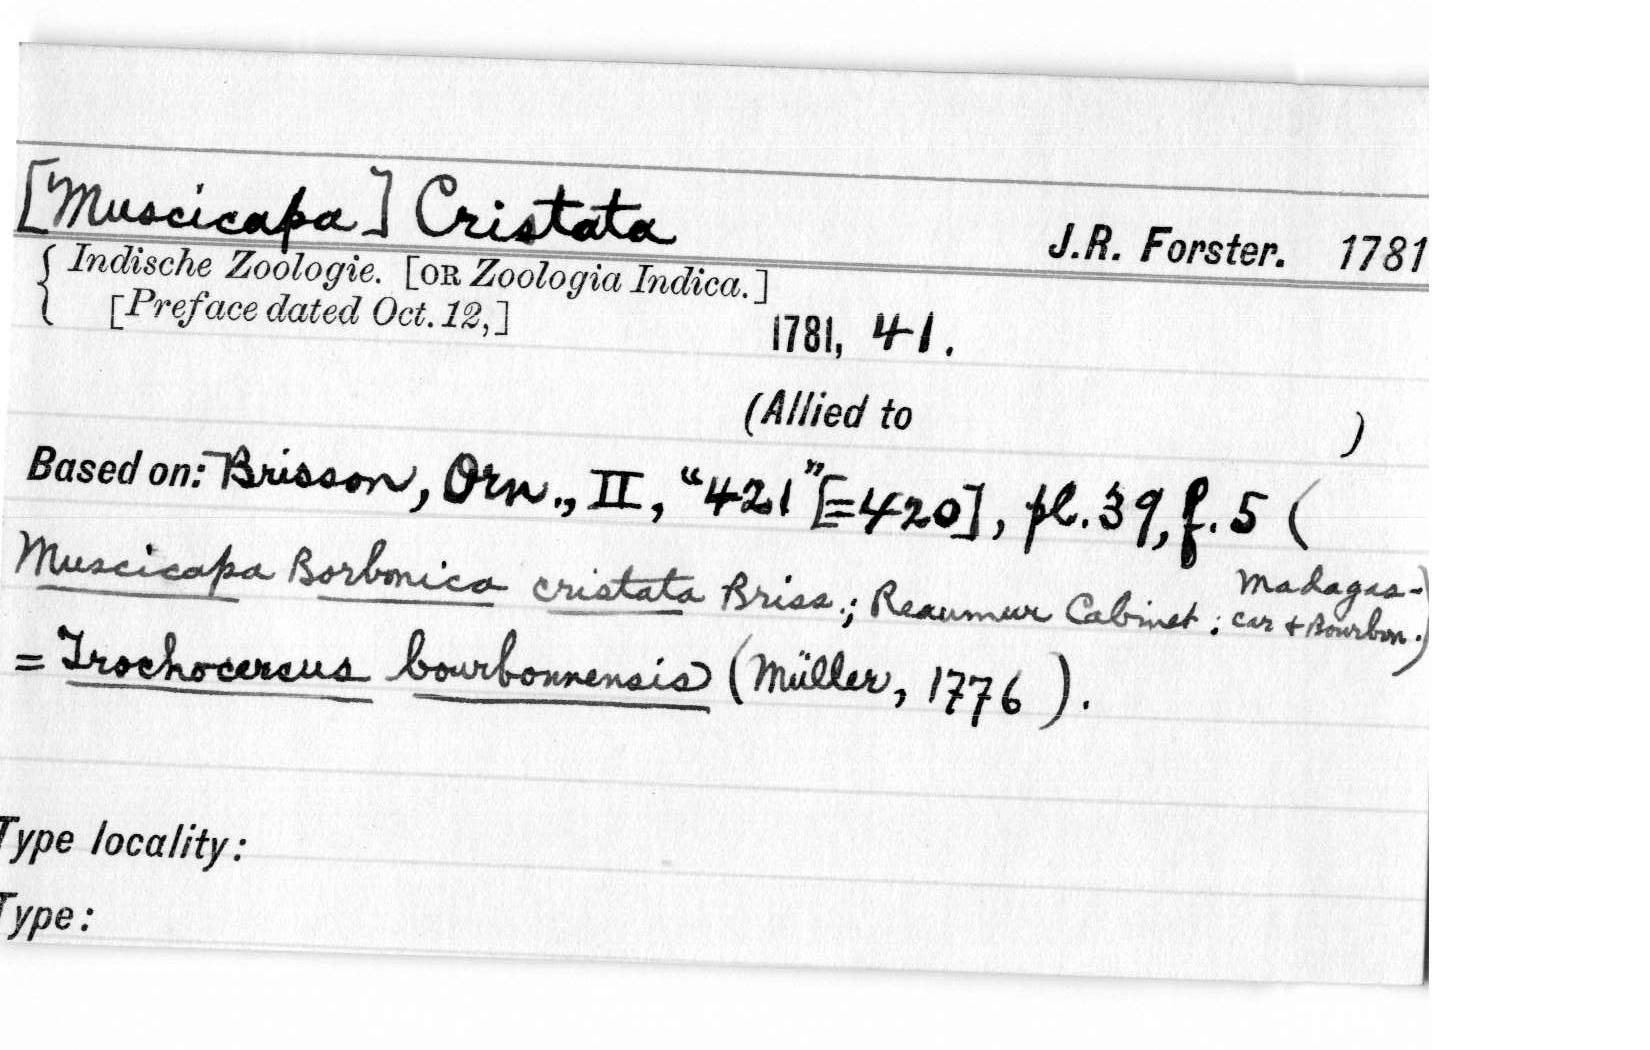 [Muscicapa] Cristata J.R. Forster. 1781
{ Indische Zoologie. [OR Zoologia Indica.]
[Preface dated Oct. 12,]
1781, 41.
(Allied to )
Based on: Brisson, Orn., II, "421" [=420], pl. 39, f. 5 (
Muscicapa Borbonica cristata Briss.; Reaumur Cabinet; Madagas-
car & Bourbon.)
= Trochocercus bourbonnensis (Müller, 1776).
Type locality:
Type: